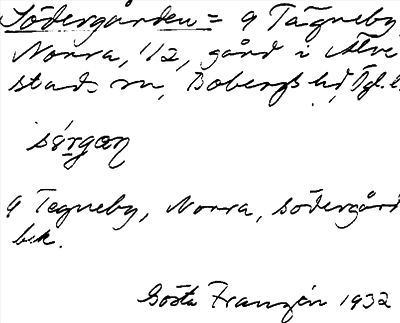 Södergården = 9 Tägneby
Norra, 1/2, gård i Älve
stads sn, Bobergs hd, Ögl.
sörgan
9 Tegneby, Norra, södergård
bek.
Gösta Franzén 1932